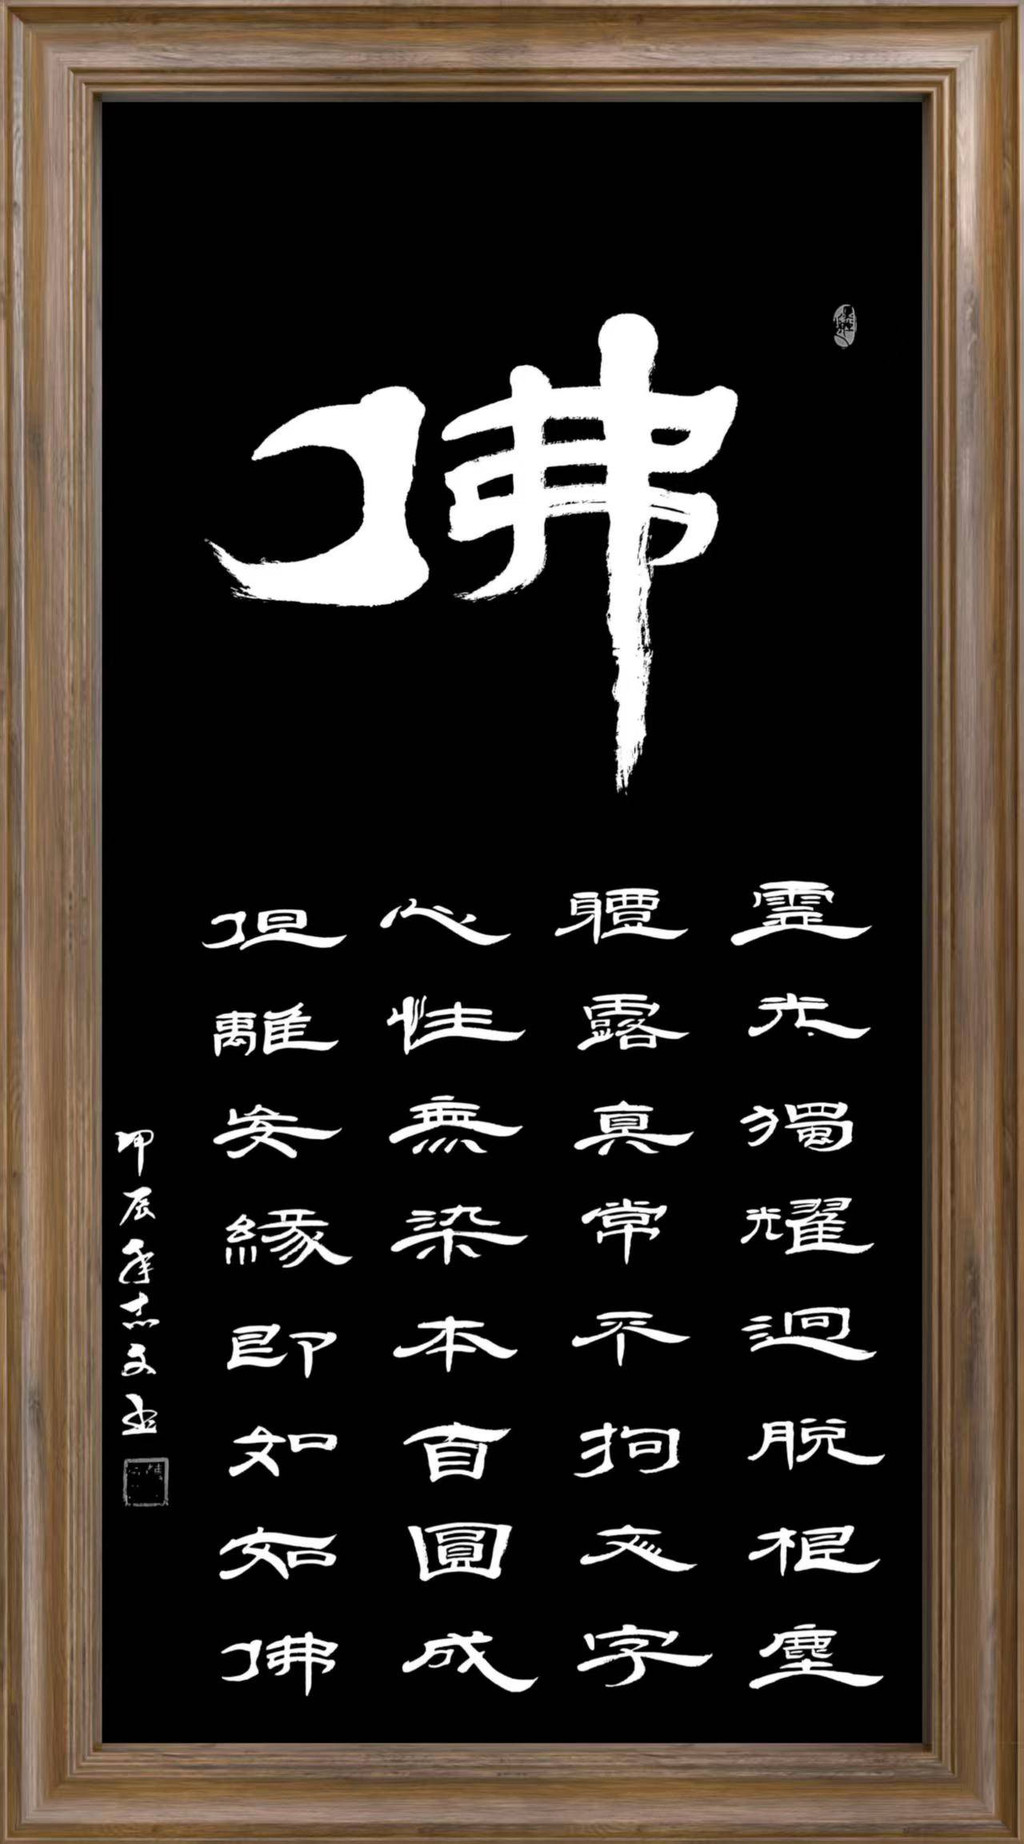 佛
靈光獨耀迥脫根塵
軆露真常不拘文字
心性無染本自圓成
但離妄緣即如如佛
甲辰年志文書